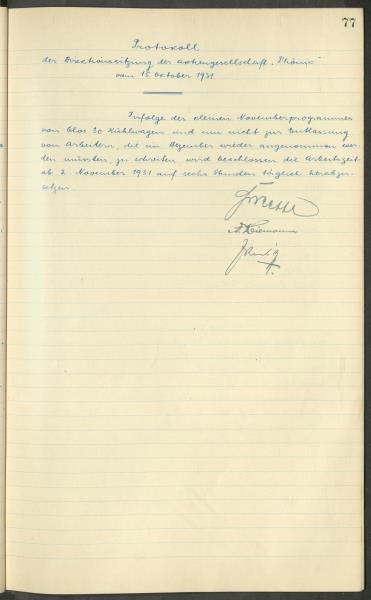 77
Protokoll
der Direktionssitzung der Aktiengesellschaft „Phönix"
vom 15. Oktober 1931
Infolge des kleinen Novemberprogrammes
von blos 30 Kühlwagen und um nicht zur Entlassung
von Arbeitern, die im Dezember wieder angenommen wer-
den müssten, zu schreiten wird beschlossen die Arbeitszeit
ab 2. November 1931 auf sechs Stunden täglich herabzu-
setzen.